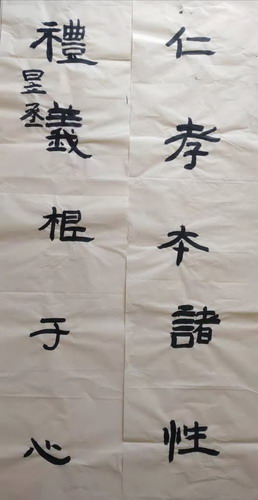 仁孝本諸性
禮義根于心
昱丞